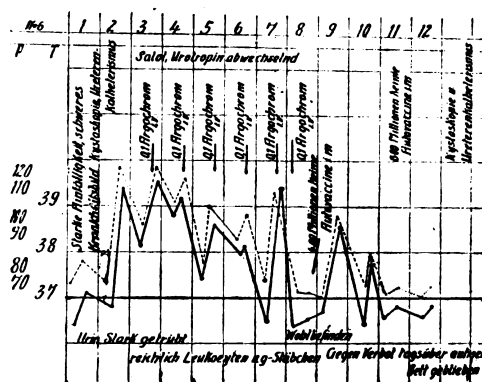 N=6 1 2 3 4 5 6 7 8 9 10 11 12
P T
Salol, Urotropin abwechselnd
Starke Anfälligkeit, schweres
Krankheitsbild
Kystoskopie, Ureteren-
Katheterismus
0,1 Argochrom
0,1 Argochrom
0,1 Argochrom
0,1 Argochrom
0,1 Argochrom
0,1 Argochrom
Millionen Keime
Autovaccine im
600 Millionen Keime
Autovaccine im
Kystoskopie u
Ureterenkatheterismus
120
110
100
90
80
70
39
38
37
Urin Stark getrübt
reichlich Leukocyten ag-Stäbchen
Wohlbefinden
Gegen Verbot tagsüber
Bett geblieben